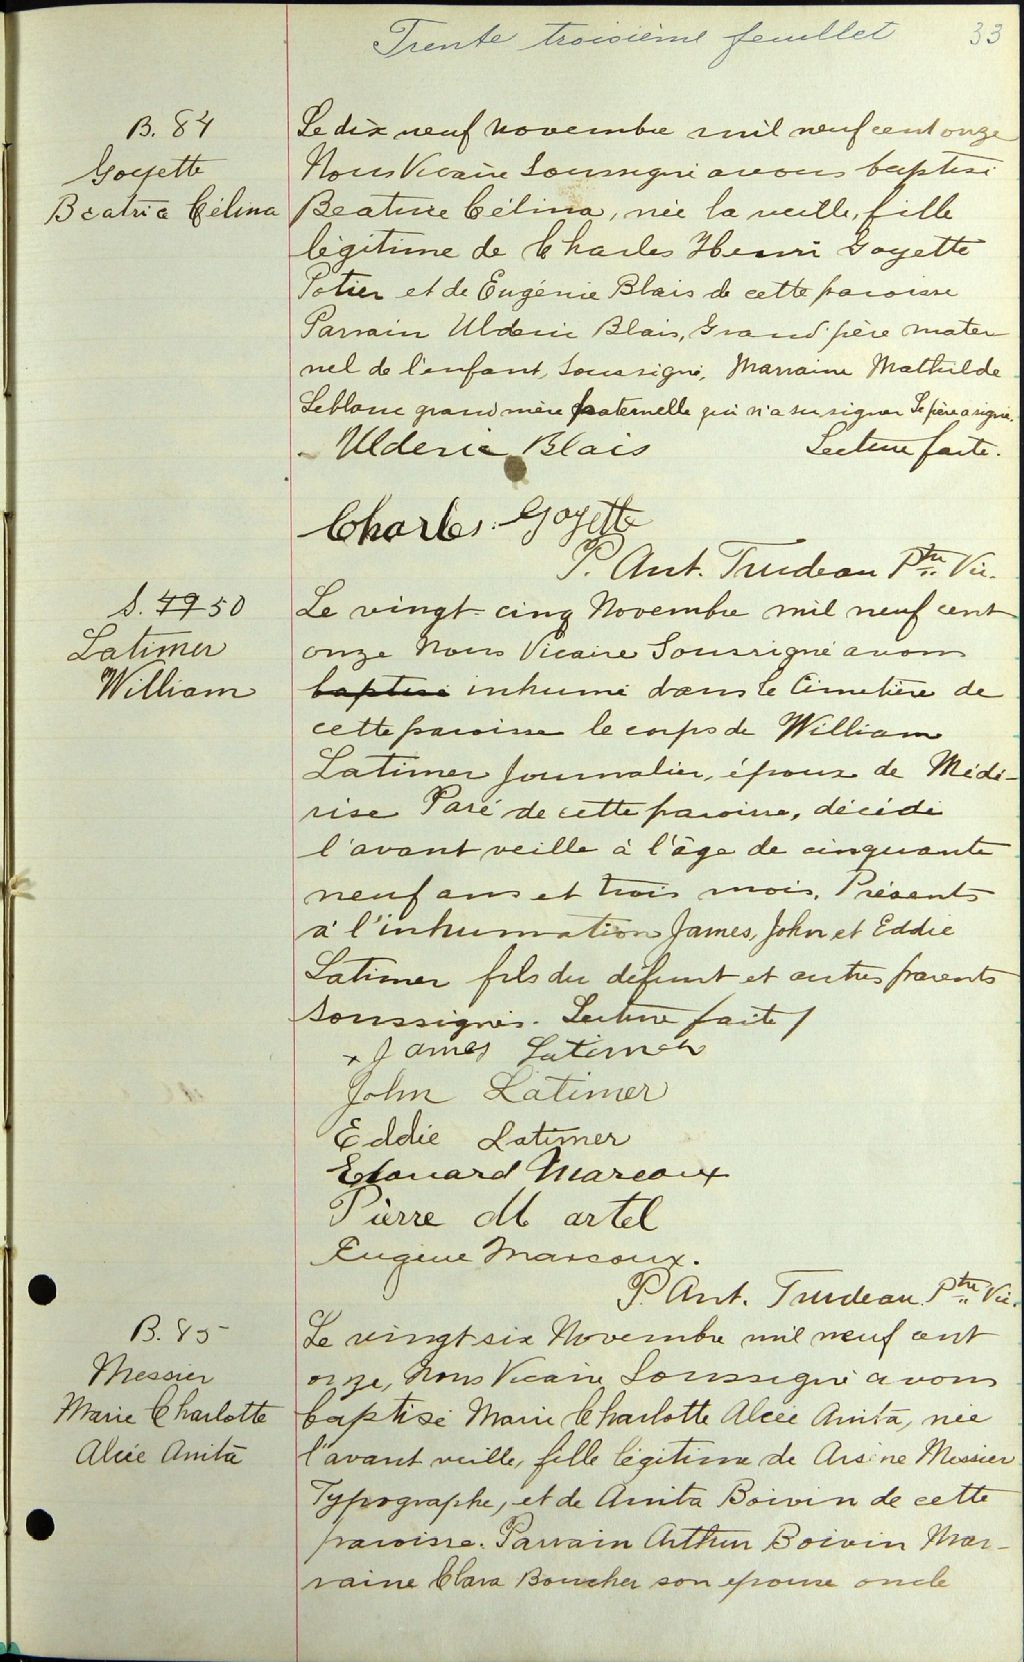 Trente troisième feuillet 33
B. 84
Goyette
Béatrice Célina
Le dix neuf Novembre mil neuf cent onze
Nous Vicaire Soussigné avons baptisé
Béatrice Célina, née la veille, fille
légitime de Charles Henri Goyette
Potier et de Eugénie Blais de cette paroisse
Parrain Ulderic Blais, Grand'père mater
nel de l'enfant, soussigné, Marraine Mathilde
Leblanc grand mère paternelle qui n'a su signer Le père a signé.
Ulderic Blais Lecture faite.
Charles Goyette
P. Ant. Trudeau Ptre Vic.
S. 49 50
Latimer
William
Le vingt-cinq Novembre mil neuf cent
onze Nous Vicaire Soussigné avons
baptisé inhumé dans le Cimetière de
cette paroisse le corps de William
Latimer Journalier, époux de Médé-
rise Paré de cette paroisse, décédé
l'avant veille à l'âge de cinquante
neuf ans et trois mois. Présents
à l'inhumation James, John et Eddie
Latimer fils du défunt et autres parents
soussignés. Lecture faite/
x James Latimer
John Latimer
Eddie Latimer
Edouard Marcoux
Pierre Martel
Eugène Marcoux.
P. Ant. Trudeau Ptre Vic.
B. 85
Messier
Marie Charlotte
Alice Anita
Le vingt six Novembre mil neuf cent
onze, Nous Vicaire Soussigné avons
baptisé Marie Charlotte Alice Anita, née
l'avant veille, fille légitime de Arsène Messier
Typographe, et de Anita Boivin de cette
paroisse. Parrain Arthur Boivin Mar-
raine Clara Boucher son épouse oncle